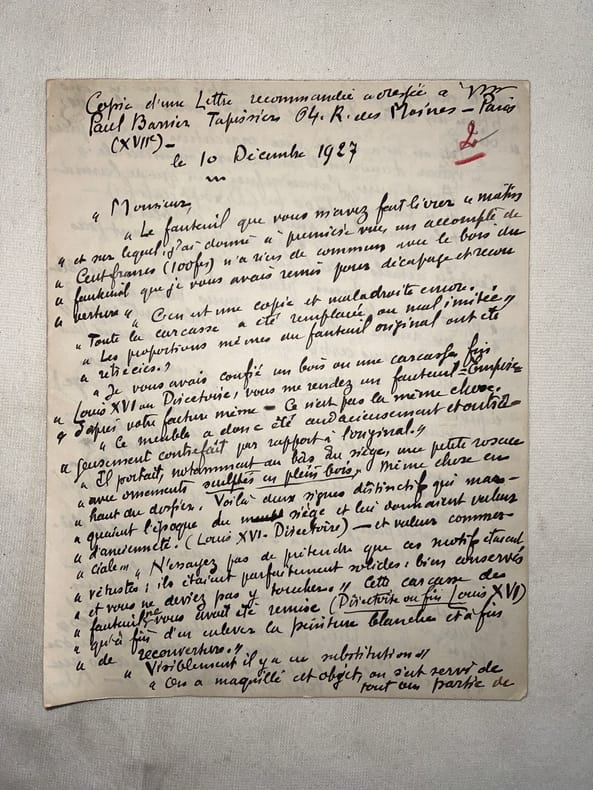 Copie d'une Lettre recommandée adressée à Mr
Paul Barrier Tapissier 64. R. des Moines - Paris
(XVIIe) -
2
le 10 Décembre 1927
" Monsieur,
" Le fauteuil que vous m'avez fait livrer ce matin
" et sur lequel j'ai donné à première vue, un accompte de
" Cent francs (100fs) n'a rien de commun avec le bois du
" fauteuil que je vous avais remis pour décapage et recou
" verture " " C'en est une copie et maladroite encore.
" Toute la carcasse a été remplacée ou mal imitée "
" Les proportions mêmes du fauteuil original ont été
" rétrécies. "
" Je vous avais confié un bois ou une carcasse fin
" Louis XVI ou Directoire, vous me rendez un fauteuil - Empire -
" d'après votre facture même - Ce n'est pas la même chose.
" Ce meuble a donc été audacieusement et outra-
" geusement contrefait par rapport à l'original. "
" Il portait, notamment au bas du siège, une petite rosace
" avec ornements sculptés en plein bois. même chose en
" haut du dossier. Voilà deux signes distinctifs qui mar-
" quaient l'époque du siège et lui donnaient valeur
" d'ancienneté. (Louis XVI - Directoire) - et valeur commer-
" ciale " " N'essayez pas de prétendre que ces motifs étaient
" vétustes; ils étaient parfaitement solides; bien conservés
" et vous ne deviez pas y toucher. " Cette carcasse de
" fauteuil ne vous avait été remise (Directoire ou fin Louis XVI)
" qu'à fin d'en enlever la peinture blanche et à fin
" de recouverture. "
" Visiblement il y a eu substitution "
" On a maquillé cet objet, on s'est servi de
tout ou partie de